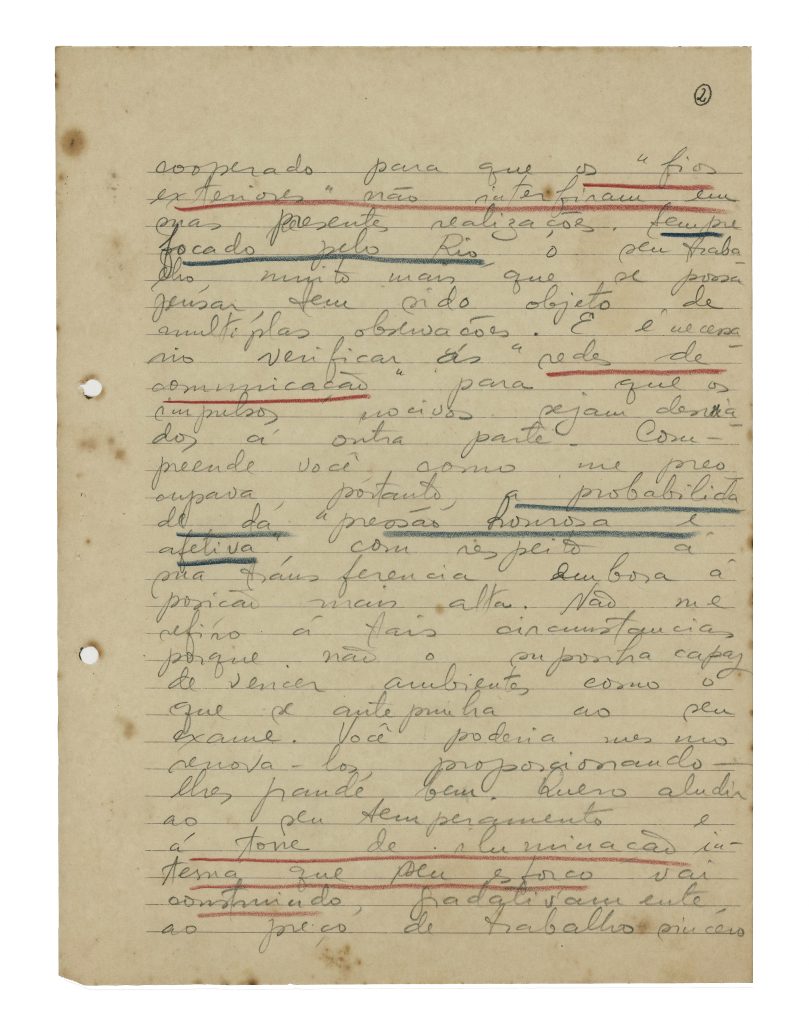 2
cooperado para que os "fios
exteriores" não interfiram em
suas presentes realizações. Sempre
focado pelo Rio, o seu traba
lho muito mais que se possa
pensar tem sido objeto de
multíplas observações. E é necessá
rio verificar ás "redes de
comunicação" para que os
impulsos nocivos sejam desvia
dos á outra parte. Com-
preende você como me preo
cupava, portanto, a probabilida
de da "pressão honrosa e
afetiva", com respeito á
sua transferencia embora á
posição mais alta. Não me
refiro á tais circumstancias
porque não o suponha capaz
de vencer ambientes como o
que se antepunha ao seu
exame. Você poderia mesmo
renova-los proporcionando-
lhes grande bem. Quero aludir
ao seu temperamento e
á torre de iluminação in-
terna que seu esforço vai
construindo, gradativamente,
ao preço de trabalho sincero